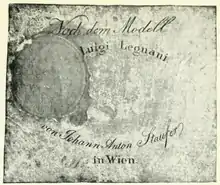 Nach dem Modell
Luigi Legnani
von Johann Anton Staufer
in Wien.